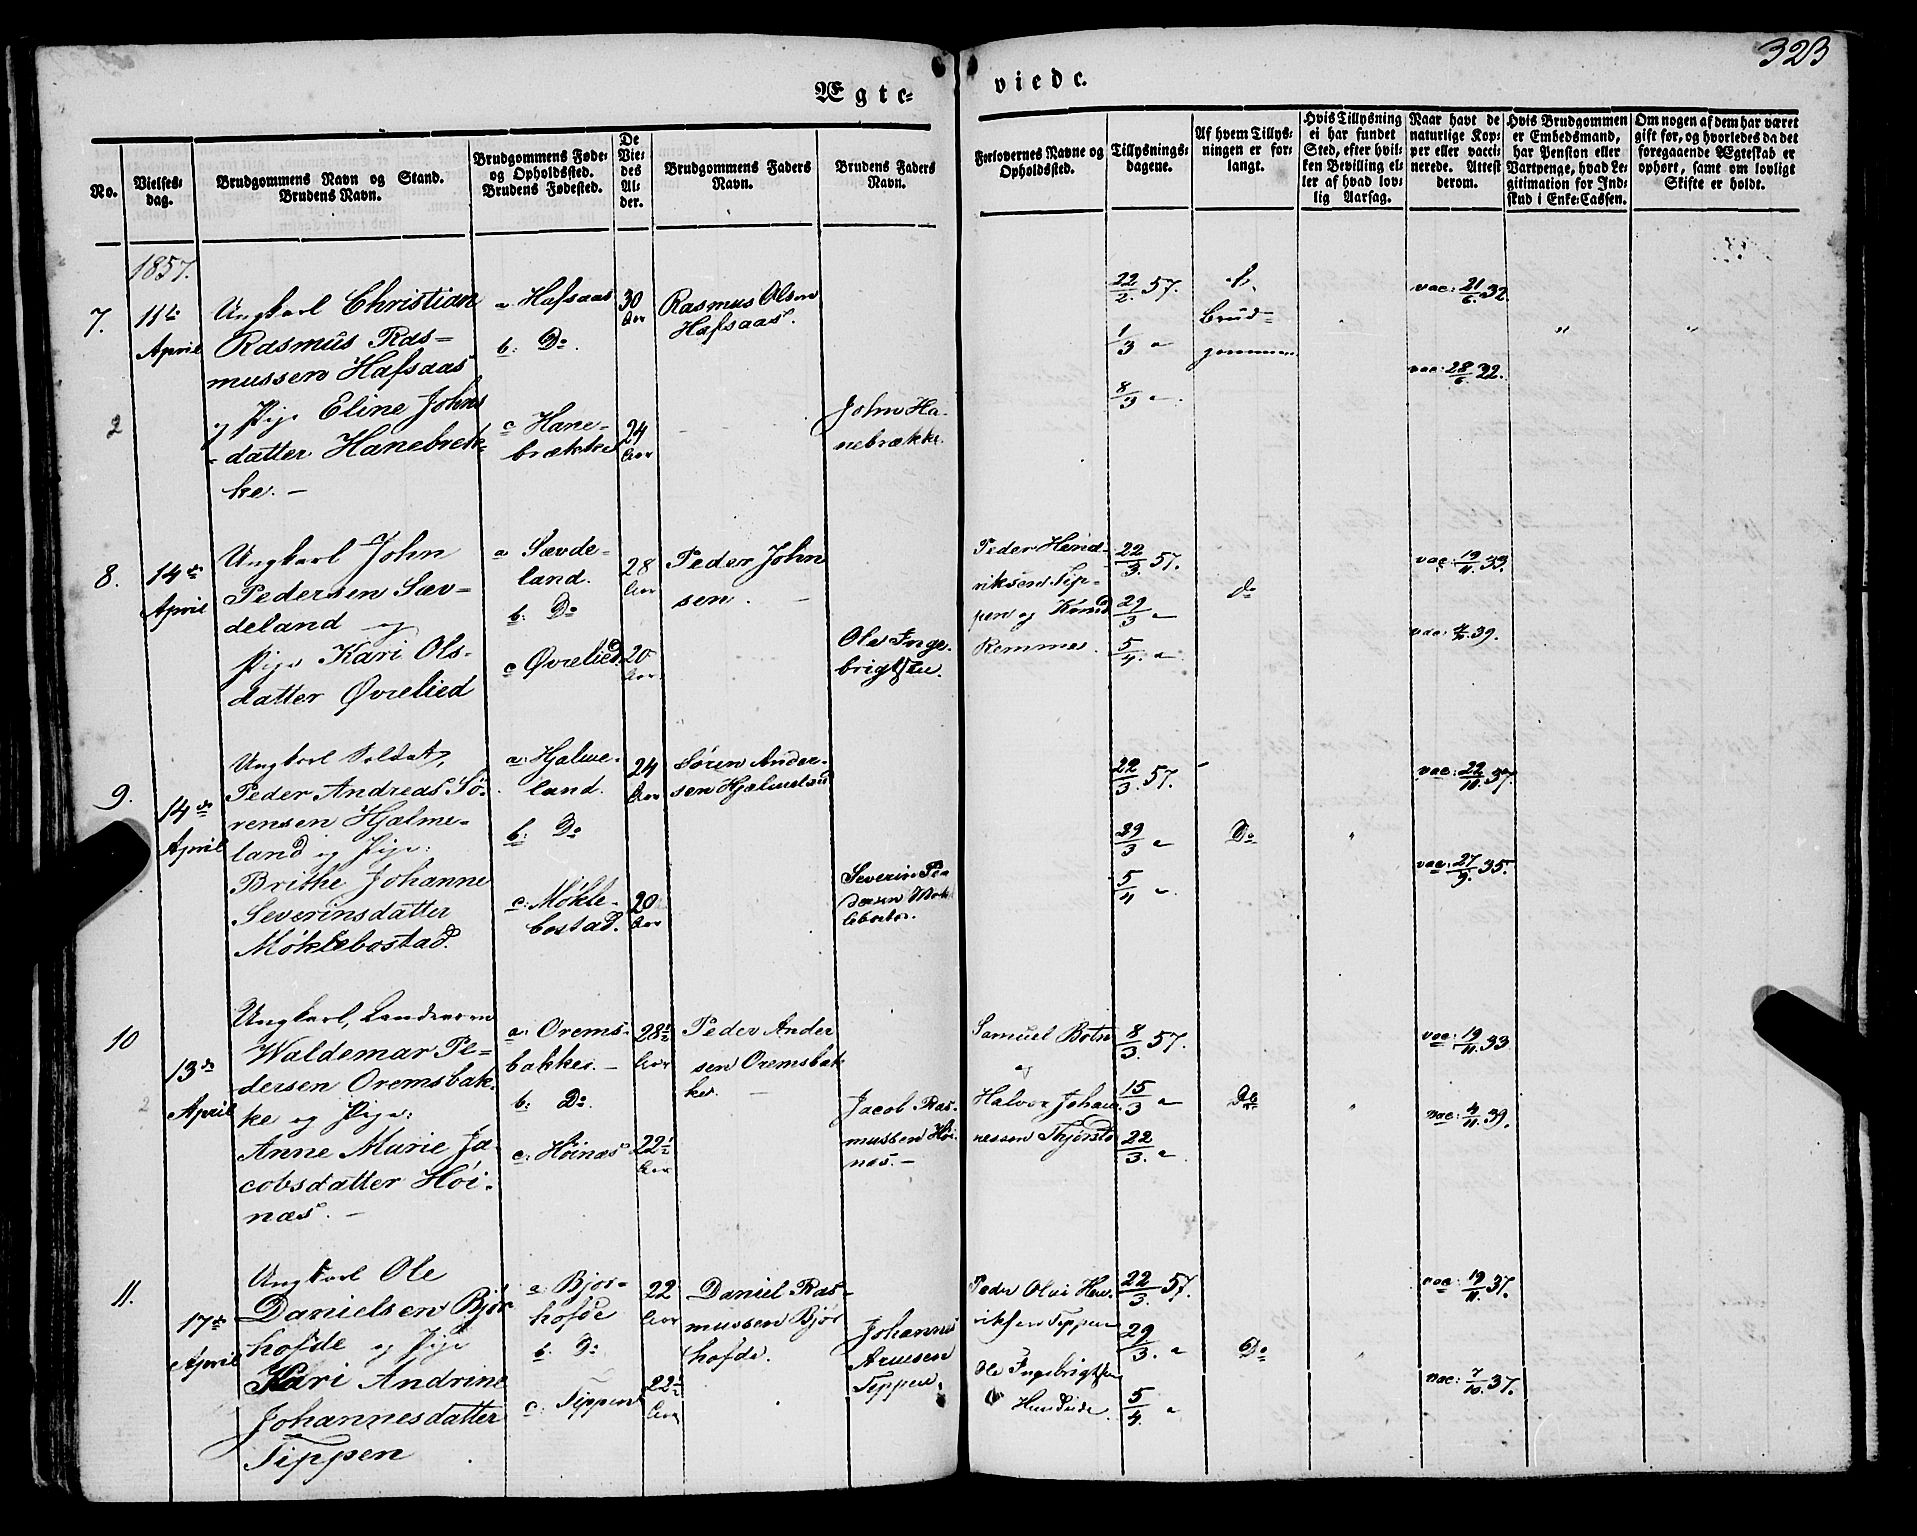 323
Ægte-
viede.
No.
Vielses-
dag.
Brudgommens Navn og Stand.
Brudens Navn.
Brudgommens Føde-
og Opholdssted.
Brudens Fødested.
De
Vie-
des
Al-
der.
Brudgommens Faders
Navn.
Brudens Faders
Navn.
Forlovernes Navne og
Opholdssted.
Tillysnings-
dagene.
Af hvem Tillys-
ningen er for-
langt.
Hvis Tillysning
ei har fundet
Sted, efter hvil-
ken Bevilling el-
ler af hvad lov-
lig Aarsag.
Naar havt de
naturlige Kop-
per eller vacci-
nerede. Attest
derom.
Hvis Brudgommen
er Embedsmand,
har Pension eller
Vartpenge, hvad Le-
gitimation for Ind-
skud i Enke-Cassen.
Om nogen af dem har været
gift før, og hvorledes da det
foregaaende Ægteskab er
ophørt, samt om lovligt
Skifte er holdt.
1857.
7.
11te
April
Ungkarl Christian
Rasmus Ras-
mussen Hafsaas
og Pige Eline Johns
datter Hanebrek-
ke. -
a Hafsaas
b: Do.
c Hane-
brække
30
Aar
24
Aar
Rasmus Olsen
Hafsaas.
John Ha-
nebrække.
22/2. 57.
1/3 "
8/3 ".
Brud-
gommen
vac: 21/6. 32.
vac: 28/6. 32.
" "
2
8.
14de
April
Ungkarl John
Pedersen Sæv-
deland og
Pige Kari Ols-
datter Øvrelied
a Sævde-
land.
b: Do
c Øvrelied.
28
Aar
20
Aar
Peder John
sen. -
Ole Inge-
brigtsen.
Peder Hend-
riksen Tip-
pen og Knud
Remme.
22/3. 57.
29/3 "
5/4. "
do
vac: 19/11. 33.
39.
9.
14de
April
Ungkarl Soldat,
Peder Andreas Sö-
rensen Hjelme-
land og Pige:
Brithe Johanne
Severinsdatter
Möklebostad.
a: Hjelme-
land.
b: Do
c: Mökle-
bostad.
24
Aar
20
Aar
Sören Ander-
sen Hjelmeland
Severin Pe-
dersen Mök
lebostad.
22/3. 57.
29/3 "
5/4 "
Do
vac: 22/10. 37.
vac: 27/9. 35.
10
13de
April
Ungkarl, Landværn
Waldemar Pe-
dersen Oremsbak-
ke og Pige:
Anne Marie Ja-
cobsdatter Höi-
næs. -
a: Orems-
bakken. -
b: Do.
c: Höinæs
28½
Aar
22½
Aar
Peder Ander
sen Oremsbak
ke. -
Jacob Ras-
mussen Höi-
næs. -
Samuel Botn
og
Halvor Johan-
nessen
8/3. 57.
15/3 "
22/3. "
Do
vac: 19/11. 33
vac: 4/11. 39.
2
11.
17de
April
Ungkarl Ole
Danielsen Bjør
hofde og Pige
Kari Andrine
Johannesdatter
Tippen
a: Bjør-
hofde
b: Do
c: Tippen
22
Aar
22½
Aar
Daniel Ras-
mussen Bjør
hofde.
Johannes
Arnesen
Tippen.
Peder Olai Hen-
riksen Tippen
Ole Ingebrigtsen
22/3. 57.
29/3. "
5/4. "
Do
vac: 19/11. 37.
vac: 7/10. 37.